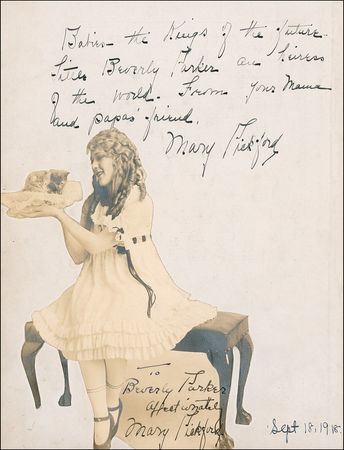 Babies - the Kings of the future -
Little Beverly Parker an heiress
of the world. From your Mama
and papas' friend.
Mary Pickford
To
Beverly Parker
affectionately
Mary Pickford
Sept 18, 1918.